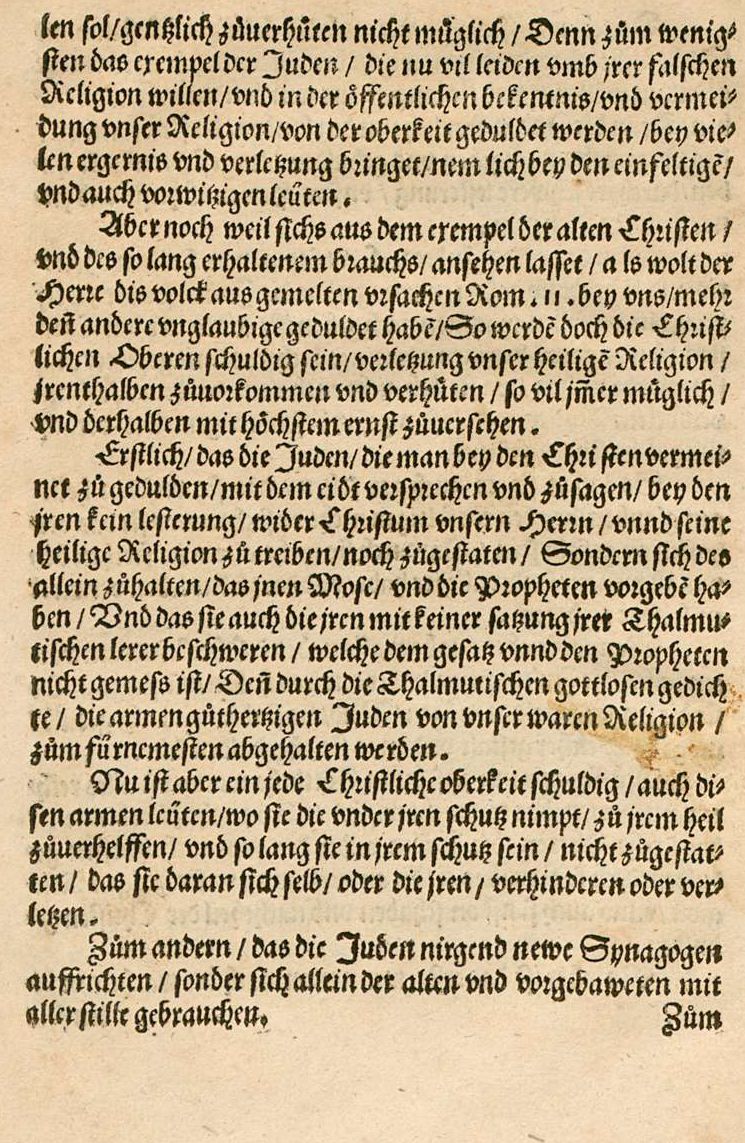 len sol/gentzlich zůuerhůten nicht müglich / Denn zům wenig⸗
sten das exempel der Juden / die nu vil leiden vmb jrer falschen
Religion willen/vnd in der öffentlichen bekentnis/vnd vermei⸗
dung vnser Religion/von der oberkeit geduldet werden /bey vie⸗
len ergernis vnd verletzung bringet/nem lich bey den einfeltigē/
vnd auch vorwitzigen leüten.
Aber noch weil sichs aus dem exempel der alten Christen /
vnd des so lang erhaltenem brauchs/ansehen lasset / a ls wolt der
Herre dis volck aus gemelten vrsachen Rom. 11. bey vns/mehr
deñ andere vnglaubige geduldet habē/So werdē doch die Christ⸗
lichen Oberen schuldig sein/verletzung vnser heiligē Religion /
jrenthalben zůuorkommen vnd verhüten / so vil jm̄er müglich /
vnd derhalben mit höchstem ernst zůuersehen.
Erstlich/das die Juden/die man bey den Chri sten vermei⸗
net zů gedulden/mit dem eidt versprechen vnd zůsagen/bey den
jren kein lesterung/wider Christum vnsern Herrn /vnnd seine
heilige Religion zů treiben/noch zůgestaten / Sondern sich des
allein zůhalten/das jnen Mose/ vnd die Propheten vorgebē ha⸗
ben / Vnd das sie auch die jren mit keiner satzung jrer Thalmu⸗
tischen lerer beschweren / welche dem gesatz vnnd den Propheten
nicht gemess ist/Deñ durch die Thalmutischen gottlosen gedich
te / die armen gůthertzigen Juden von vnser waren Religion /
zům fürnemesten abgehalten werden.
Nu ist aber ein jede Christliche oberkeit schuldig /auch di⸗
sen armen leüten/wo sie die vnder jren schutz nimpt/zů jrem heil
zůuerhelffen/ vnd so lang sie in jrem schutz sein / nicht zůgestat⸗
ten / das sie daran sich selb/ oder die jren / verhinderen oder ver⸗
letzen.
Zům andern / das die Juden nirgend newe Synagogen
auffrichten / sonder sich allein der alten vnd vorgebaweten mit
aller stille gebrauchen.
Zům